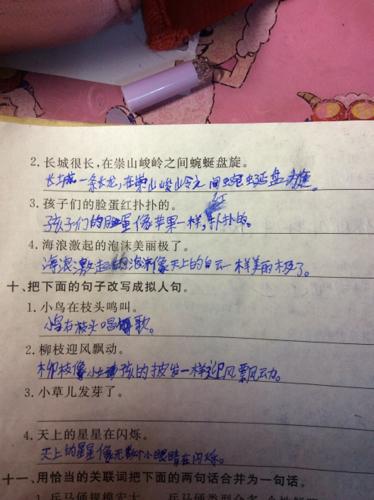 2. 长城很长,在崇山峻岭之间蜿蜒盘旋。
长城一条长龙,在崇山峻岭之间蜿蜒盘旋。
3. 孩子们的脸蛋红扑扑的。
红
孩子们的脸蛋像苹果一样,扑扑的。
4. 海浪激起的泡沫美丽极了。
海浪激起的泡沫像天上的白云一样美丽极了。
十、把下面的句子改写成拟人句。
1. 小鸟在枝头鸣叫。
小鸟在枝头唱歌。
2. 柳枝迎风飘动。
柳枝像小孩的披发一样迎风飘动。
3. 小草儿发芽了。
4. 天上的星星在闪烁。
天上的星星像无数小眼睛在闪烁。
十一、用恰当的关联词把下面的两句话合并为一句话。